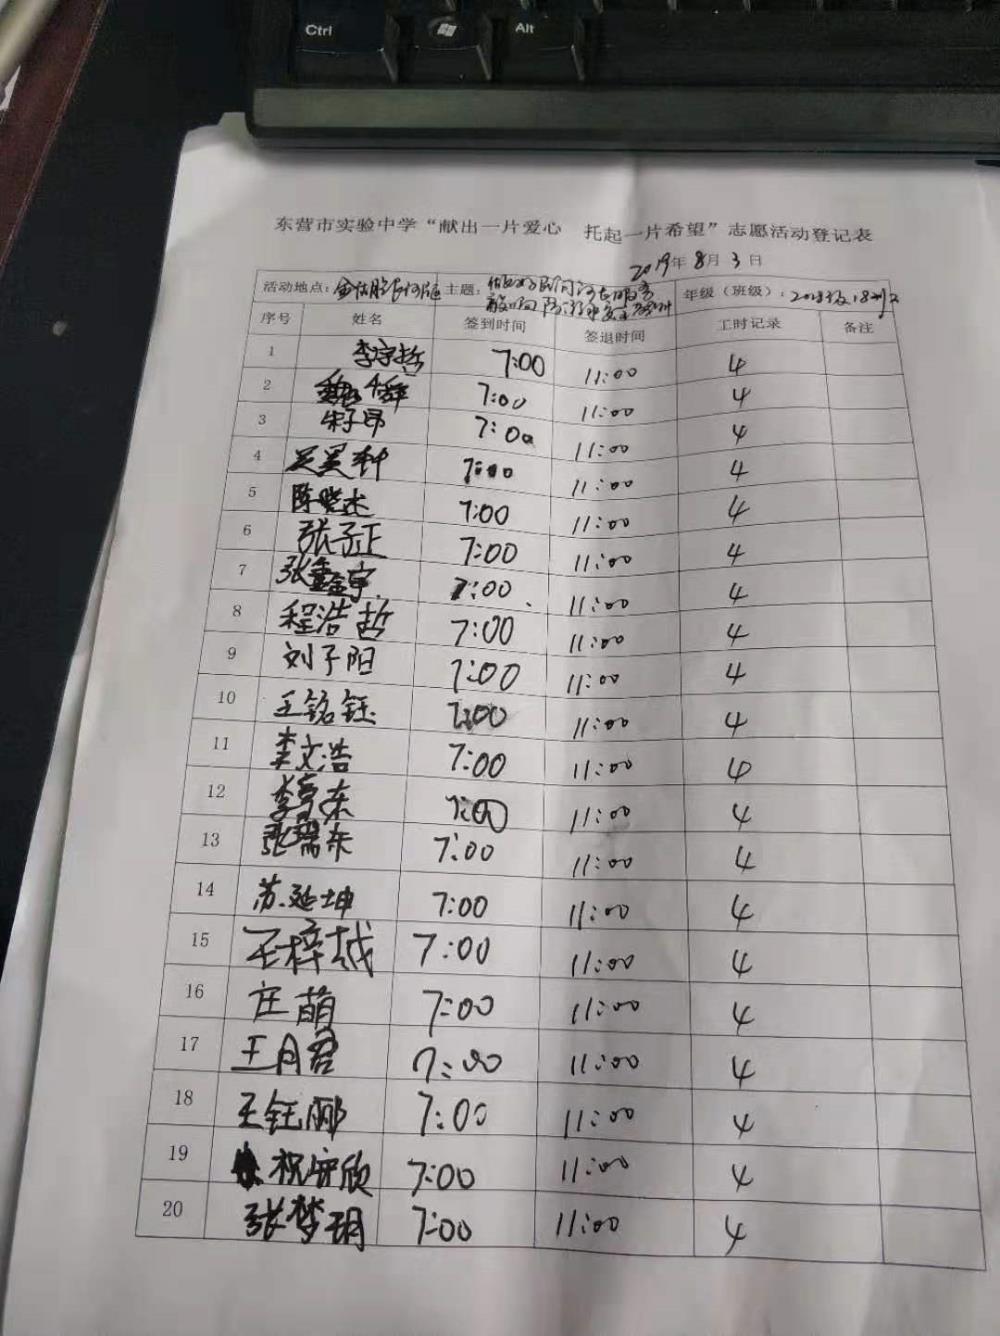 Ctrl
Alt
东营市实验中学“献出一片爱心 托起一片希望”志愿活动登记表
2019年8月3日
活动地点: 主题: 年级（班级）: 2018级18班
序号 姓名 签到时间 签退时间 工时记录 备注
1 李宗哲 7:00 11:00 4
2 7:00 11:00 4
3 朱子昂 7:00 11:00 4
4 7:00 11:00 4
5 陈晓杰 7:00 11:00 4
6 张子正 7:00 11:00 4
7 张鑫宇 7:00 11:00 4
8 程浩哲 7:00 11:00 4
9 刘子阳 7:00 11:00 4
10 王铭钰 7:00 11:00 4
11 李文浩 7:00 11:00 4
12 7:00 11:00 4
13 张瑞东 7:00 11:00 4
14 苏延坤 7:00 11:00 4
15 王梓越 7:00 11:00 4
16 庄萌 7:00 11:00 4
17 王月君 7:00 11:00 4
18 王钰郦 7:00 11:00 4
19 7:00 11:00 4
20 张梦玥 7:00 11:00 4